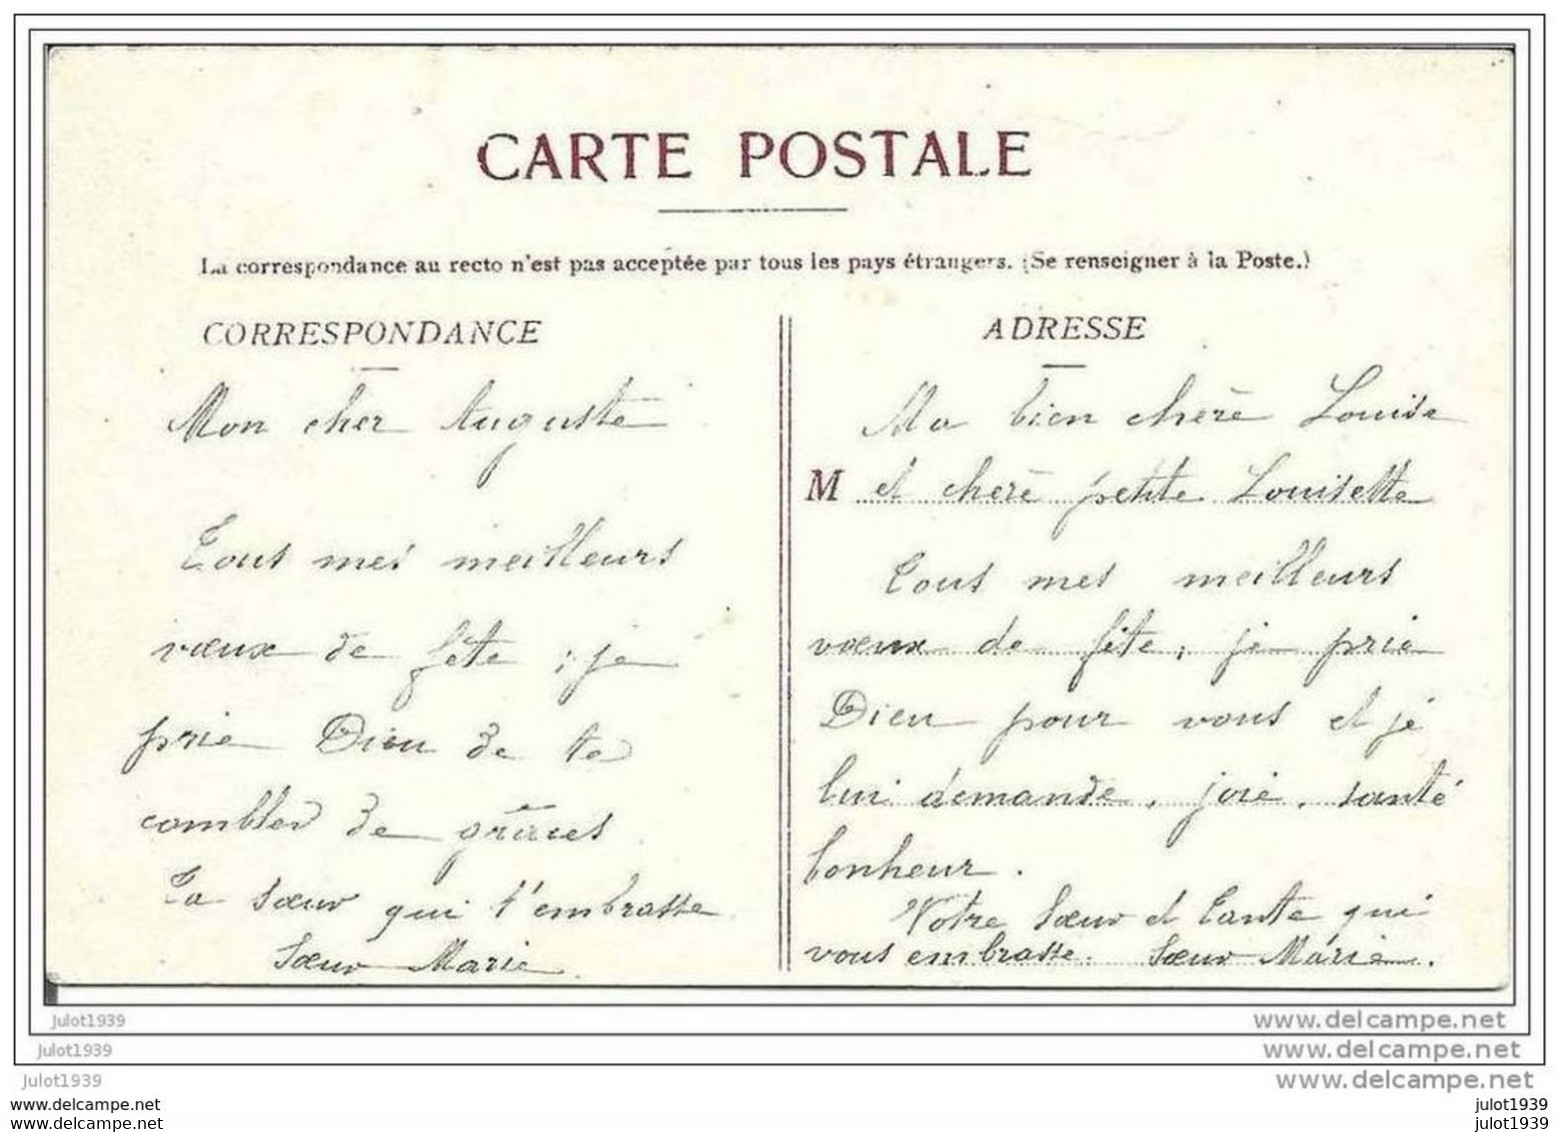 CARTE POSTALE
La correspondance au recto n'est pas acceptée par tous les pays étrangers. (Se renseigner à la Poste.)
CORRESPONDANCE
Mon cher Auguste
Tous mes meilleurs
vœux de fête ; je
prie Dieu de te
combler de grâces
Ta sœur qui t'embrasse
Sœur Marie.
ADRESSE
Ma bien chère Louise
M et chère petite Louisette
Tous mes meilleurs
vœux de fête, je prie
Dieu pour vous et je
lui demande, joie, santé
bonheur.
Votre sœur et Tante qui
vous embrasse. Sœur Marie.
julot1939
www.delcampe.net
julot1939
www.delcampe.net
julot1939
www.delcampe.net
www.delcampe.com
julot1939
www.delcampe.com
julot1939